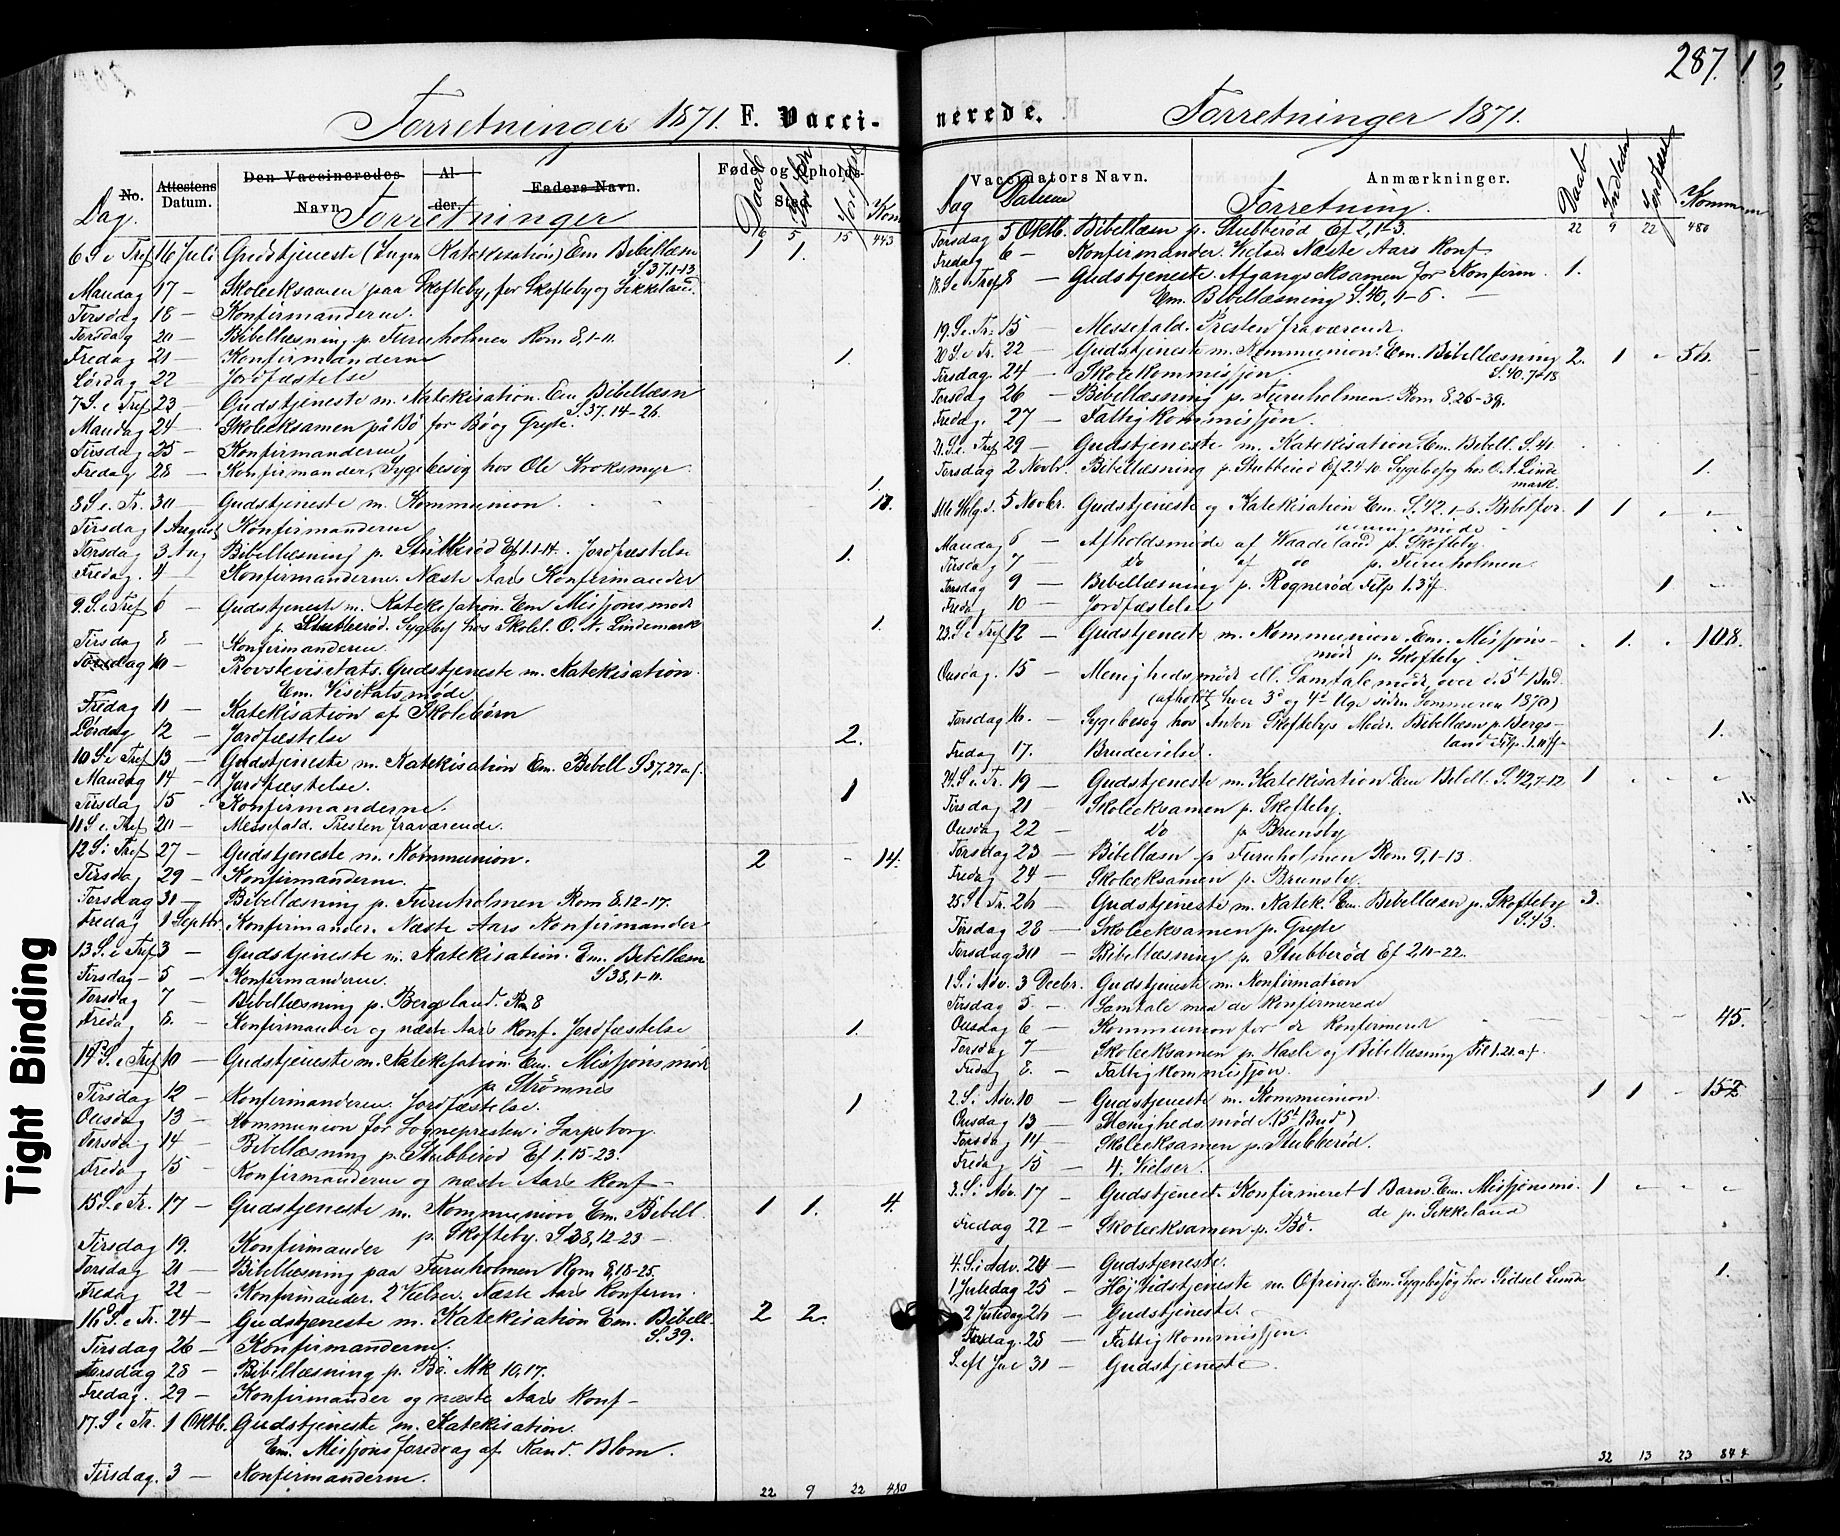 287.
1
Forretninger 1871. F. Vacci-
No.
Attestens Datum.
Den Vaccineredes Navn
Al- der.
Faders Navn.
Føde- og Opholds- Sted.
Dag. Forretninger Daab Kom
16 5 15 443
6 S e Tref 16 Juli Gudstjeneste (Ingen Katekisation) Em Bibellæsn 1 1.
S. 37.1-13
Mandag 17 — Skoleeksamen paa Skofteby, for Skofteby og Sikkeland.
Tirsdag 18 — Konfirmanderne.
Torsdag 20 — Bibellæsning p. Furuholmen Rom 8,1-11.
Fredag 21 — Konfirmanderne
Lørdag 22 — Jordfæstelse 1.
7 S. e Tref 23 — Gudstjeneste m. Katekisation. Em Bibellæsn
S. 37. 14-26.
Mandag 24 — Skoleeksamen på Bø for Bø og Gryte.
Tirsdag 25 — Konfirmanderne
Fredag 28 — Konfirmander, Sygebesøg hos Ole Kroksmyr 1.
8 S e. Tr. 30 — Gudstjeneste m. Kommunion. 18.
Tirsdag 1 August Konfirmanderne
Torsdag 3 Aug Bibellæsning p. Stubberød Ef 1.1-14. Jordfæstelse 1.
Fredag. 4 — Konfirmanderne. Næste Aars Konfirmander
9. S. e Tref 6 — Gudstjeneste m. Katekisation. Em Missjonsmøde
p. Stubberød. Sygebes hos Skolel. O. A. Lindemark 1.
Tirsdag 8 — Konfirmanderne
Torsdag 10 — Provstevisitats. Gudstjeneste m. Katekisation.
Em. Visitatsmøde
Fredag 11 — Katekisation af Skolebørn
Lørdag 12 — Jordfæstelse 2.
10 S. e Tref 13 — Gudstjeneste m. Katekisation Em. Bibell S 37,27 af.
Mandag 14 — Jordfæstelse. 1
Tirsdag 15 — Konfirmanderne.
11 S. e. Tref 20 — Messefald. Presten fraværende.
12 S. i Tref 27 — Gudstjeneste m. Kommunion. 2 14.
Tirsdag 29 — Konfirmanderne.
Torsdag 31 — Bibellæsning p. Furuholmen Rom 8.12-17.
Fredag 1 Septbr. Konfirmander. Næste Aars Konfirmander
13 S. e Tref 3 — Gudstjeneste m. Katekisation. Em. Bibellæsn
S 38,1-11.
Tirsdag — 5 — Konfirmanderne.
Torsdag 7 — Bibellæsning p. Bergsland. Rm 8
Fredag 8. — Konfirmander og næste Aars Konf. Jordfæstelse 1.
14 S. e Tref 10 — Gudstjeneste m. Katekisation. Em. Missjonsmøde
p Strømnes
Tirsdag 12 — Konfirmanderne Jordfæstelse. 1
Onsdag 13 — Kommunion for Sognepresten i Sarpsborg.
Torsdag 14 — Bibellæsning p. Stubberød Ef 1. 15-23.
Fredag 15 — Konfirmanderne og næste Aars Konf —
15 S. e Tr. 17 — Gudstjeneste m. Kommunion Em. Bibell. 1 1. 4.
p. Skofteby. S 38, 12-23 —
Tirsdag 19. Konfirmander
Torsdag 21 — Bibellæsning paa Furuholmen Rom 8,18-25.
Fredag 22 — Konfirmander. 2 Vielser. Næste Aars Konfirm.
16 S. e Tr. 24 — Gudstjeneste m. Katekisation Em. Bibell. 2 2.
S. 39.
Tirsdag 26 — Konfirmanderne.
Torsdag 28 — Bibellæsning p. Bø. Mk 10,17.
Fredag. 29 — Konfirmander og næste Aars Konf —
17. S. e Tr. 1 Oktb. Gudstjeneste m. Katekisation.
Em. Missjonsforedrag af Kand. Blom.
Tirsdag. 3 — Konfirmanderne.
22 9 22 480
nerede. Forretninger 1871.
Vaccinators Navn. Anmærkninger.
Dag Datum Forretning. Daab Jordfæst Kommun
22 9 22 480
Torsdag 5 Oktb. Bibellæsn p. Stubberød Ef 2,1-3.
Fredag 6 — Konfirmander. Vielse. Næste Aars Konf.
18. S e Tref 8 — Gudstjeneste. Afgangseksamen for Konfirm. 1.
Em. Bibellæsning S. 40, 1-6. —
19. S. e Tr. 15 — Messefald. Presten fraværende.
20 S. e Tr. 22 — Gudstjeneste m. Kommunion. Em. Bibellæsning 2. 1 56.
S. 40. 7-18
Tirsdag. 24 — Skolekommissjon.
Torsdag 26 — Bibellæsning p. Furuholmen. Rom 8.26-39.
Fredag. 27 — Fattigkommissjon.
21. S. e Tref 29 — Gudstjeneste m. Katekisation. Em. Bibell. S. 41
Torsdag 2 Novbr. Bibellæsning p. Stubberød Ef 2 4-10 Sygebesøg hos O. A. Linde 1.
mark.
Alle Helg. d. 5 Novbr. Gudstjeneste og Katekisation Em. S. 42. 1-6. Bibelfor 1 1
eningsmøde
Mandag 6 — Afholdsmøde af Waadeland p. Skofteby.
Tirsdag 7 — Do af do p. Furuholmen.
Torsdag 9 — Bibellæsning p. Rognerød Filp 1. 3ff. 1
Fredag 10 — Jordfæstelse
23. S. e Tref 12 — Gudstjeneste m. Kommunion. Em. Missjons- 1. 108.
møde p. Skofteby.
Onsdag. 15 — Menighedsmøde ell. Samtalemøde, over d. 5t Bud
(afholdt hver 3d og 4d Uge siden Sommeren 1870)
Torsdag 16. — Sygebesøg hos Anton Skoftebys Moder. Bibellæsn p. Bergs- 1.
land Filp. 1. 11ff—
Fredag 17. Brudevielse.
24. S. e Tr. 19 — Gudstjeneste m. Katekisation. Em Bibell. S. 42,7-12 1
Tirsdag 21 — Skoleeksamen p. Skofteby.
Onsdag 22 — Do p. Brunsby
Torsdag 23 — Bibellæsn p. Furuholmen Rom 9,1-13.
Fredag 24 — Skoleeksamen p. Brunsby.
25. S. e Tr. 26 — Gudstjeneste m. Katek. Em. Bibellæsn p. Skofteby 3.
S. 43.
Tirsdag 28 — Skoleeksamen p. Gryte
Torsdag 30 — Bibellæsning p. Stubberød Ef 2,11-22.
1 S. i Adv. 3 Decbr. Gudstjeneste m. Konfirmation
Tirsdag 5. — Samtale med de Konfirmerede
Onsdag 6 — Kommunion for de Konfirmerede 45.
Torsdag 7 — Skoleeksamen p. Hasle og Bibellæsning Fil 1. 21. af.
Fredag 8. — Fattigkommissjon.
2. S. i Adv. 10 — Gudstjeneste m. Kommunion. 1 1 152
Onsdag 13 — Menighedsmøde (5t Bud)
Torsdag 14 — Skoleeksamen p. Stubberød.
Fredag 15 — 4 Vielser.
3. S. i Adv. 17 — Gudstjenest. Konfirmeret 1 Barn. Em. Missjonsmø- 1
de p. Sikkeland
Fredag 22 — Skoleeksamen p. Bø.
4. S. i Adv. 24 — Gudstjeneste.
1 Juledag 25 — Højtidstjeneste m. Ofring. Em. Sygebesøg hos Sidsel Lunde 1.
2 Juledag 26 — Gudstjeneste.
Torsdag. 28 — Fattigkommissjon.
S. eft Jul 31 — Gudstjeneste.
32 13 23 844
Tight Binding